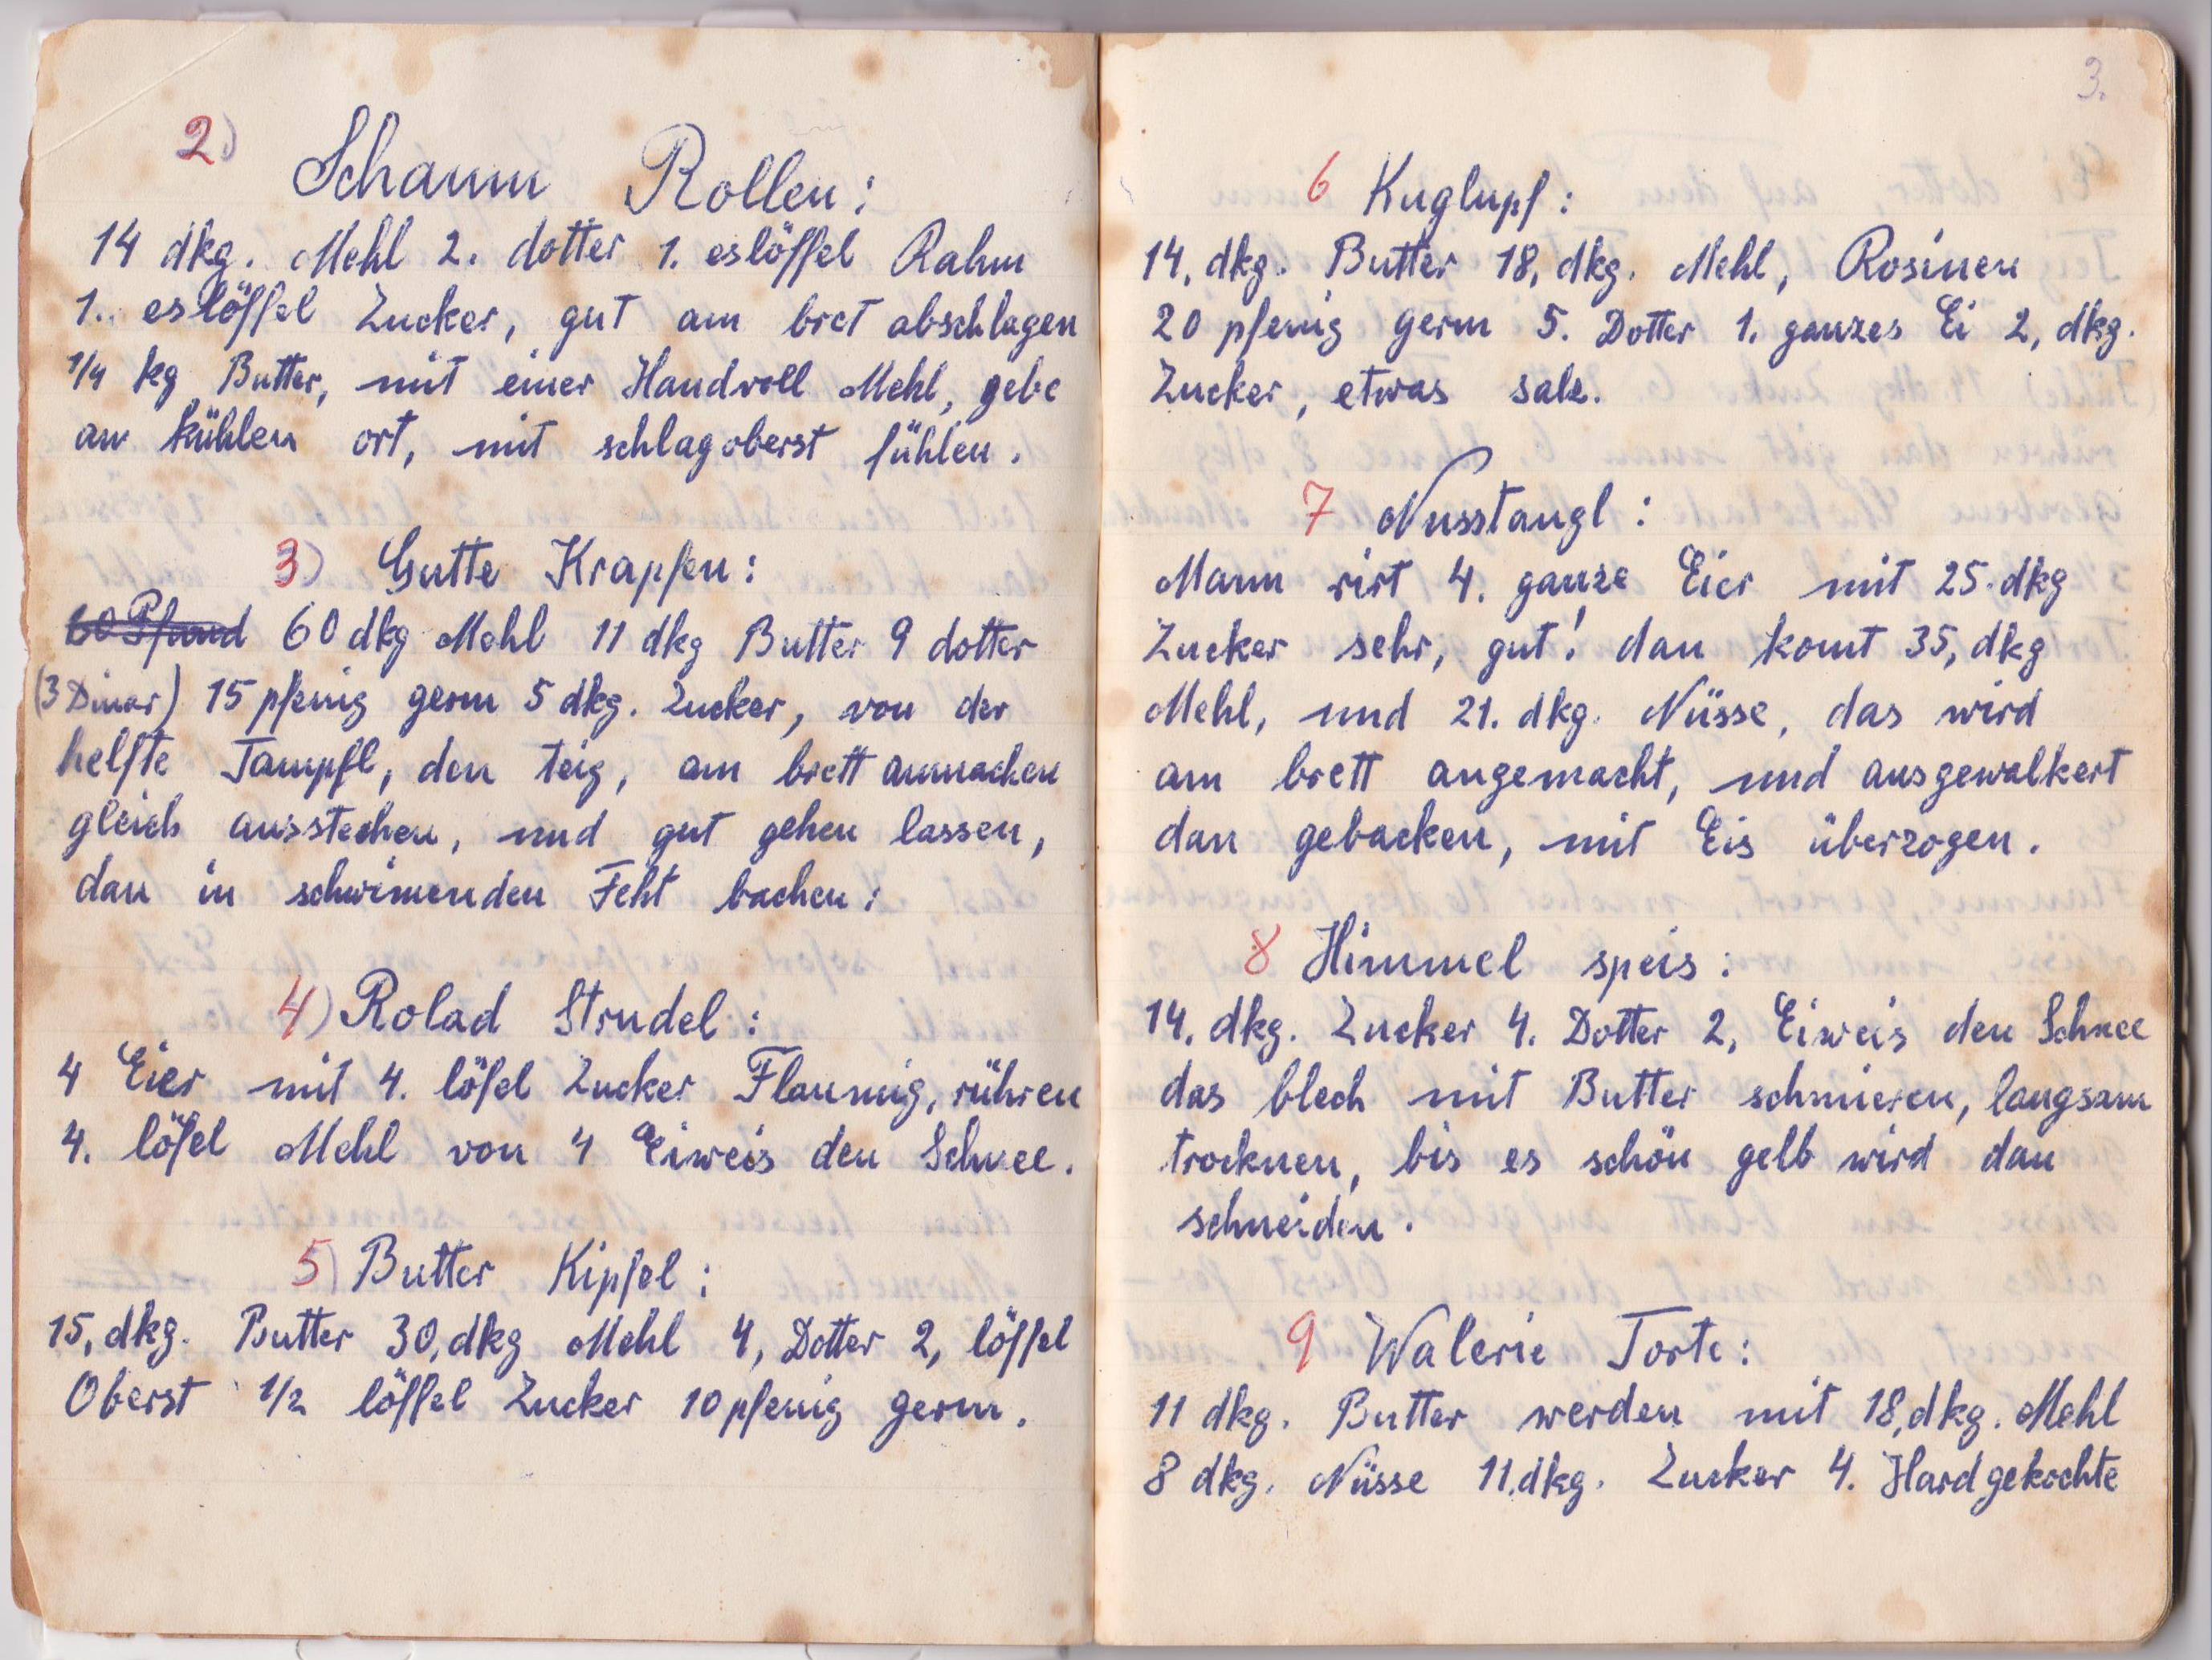 2)
Schaum Rollen:
14 dkg. Mehl 2. dotter 1. eslöffel Rahm
1.. eslöffel Zucker, gut am bret abschlagen
1/4 kg Butter, mit einer Handvoll Mehl, gebe
an kühlen ort, mit schlagoberst fühlen.
3) Gutte Krapfen:
60 Pfund 60 dkg Mehl 11 dkg Butter 9 dotter
(3 Dinar) 15 pfenig germ 5 dkg. Zucker, von der
helfte Tampfl, den teig, am brett anmachen
gleich ausstechen, und gut gehen lassen,
dan in schwimenden Feht bachen:
4) Rolad Strudel:
4 Eier mit 4. löfel Zucker Flaumig, rühren
4. löfel Mehl von 4 Eiweis den Schnee.
5) Butter Kipfel:
15, dkg. Butter 30, dkg Mehl 4, Dotter 2, löffel
Oberst 1/2 löffel Zucker 10 pfenig germ.
3.
6 Kuglupf:
14, dkg. Butter 18, dkg. Mehl, Rosinen
20 pfenig germ 5. Dotter 1. ganzes Ei 2, dkg.
Zucker, etwas salz.
7 Nusstangl:
Mann rirt 4. ganze Eier mit 25. dkg
Zucker sehr, gut! dan komt 35, dkg
Mehl, und 21. dkg. Nüsse, das wird
am brett angemacht, und ausgewalkert
dan gebacken, mit Eis überzogen.
8 Himmel speis:
14. dkg. Zucker 4. Dotter 2, Eiweis den Schnee
das blech mit Butter schmieren, langsam
trocknen, bis es schön gelb wird dan
schneiden.
9 Walerie Torte:
11 dkg. Butter werden mit 18, dkg. Mehl
8 dkg. Nüsse 11. dkg. Zucker 4. Hardgekochte